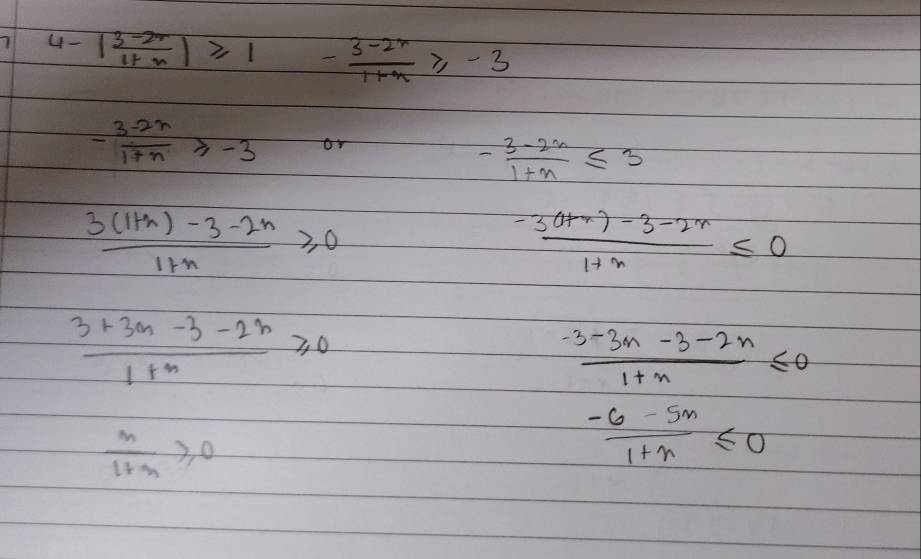 4 - |(3-2x)/(1+x)| ⩾ 1    - (3-2x)/(1+x) ⩾ -3
- (3-2x)/(1+x) ⩾ -3    or    - (3-2x)/(1+x) ≤ 3
(3(1+x) - 3 - 2x)/(1+x) ⩾ 0    (-3(1+x) - 3 - 2x)/(1+x) ≤ 0
(3 + 3x - 3 - 2x)/(1+x) ⩾ 0    (-3 - 3x - 3 - 2x)/(1+x) ≤ 0
x/(1+x) ⩾ 0    (-6 - 5x)/(1+x) ≤ 0